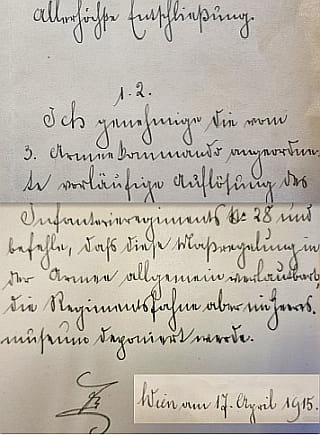 Allerhöchste Entschließung.
1. 2.
Ich genehmige die vom
3. Armeekommando angeordne-
te vorläufige Auflösung des
Infanterieregiments Nr. 28 und
befehle, daß diese Maßregelung in
der Armee allgemein verlautbart,
die Regimentsfahne aber im Heeres-
museum deponiert werde.
Wien am 17. April 1915.